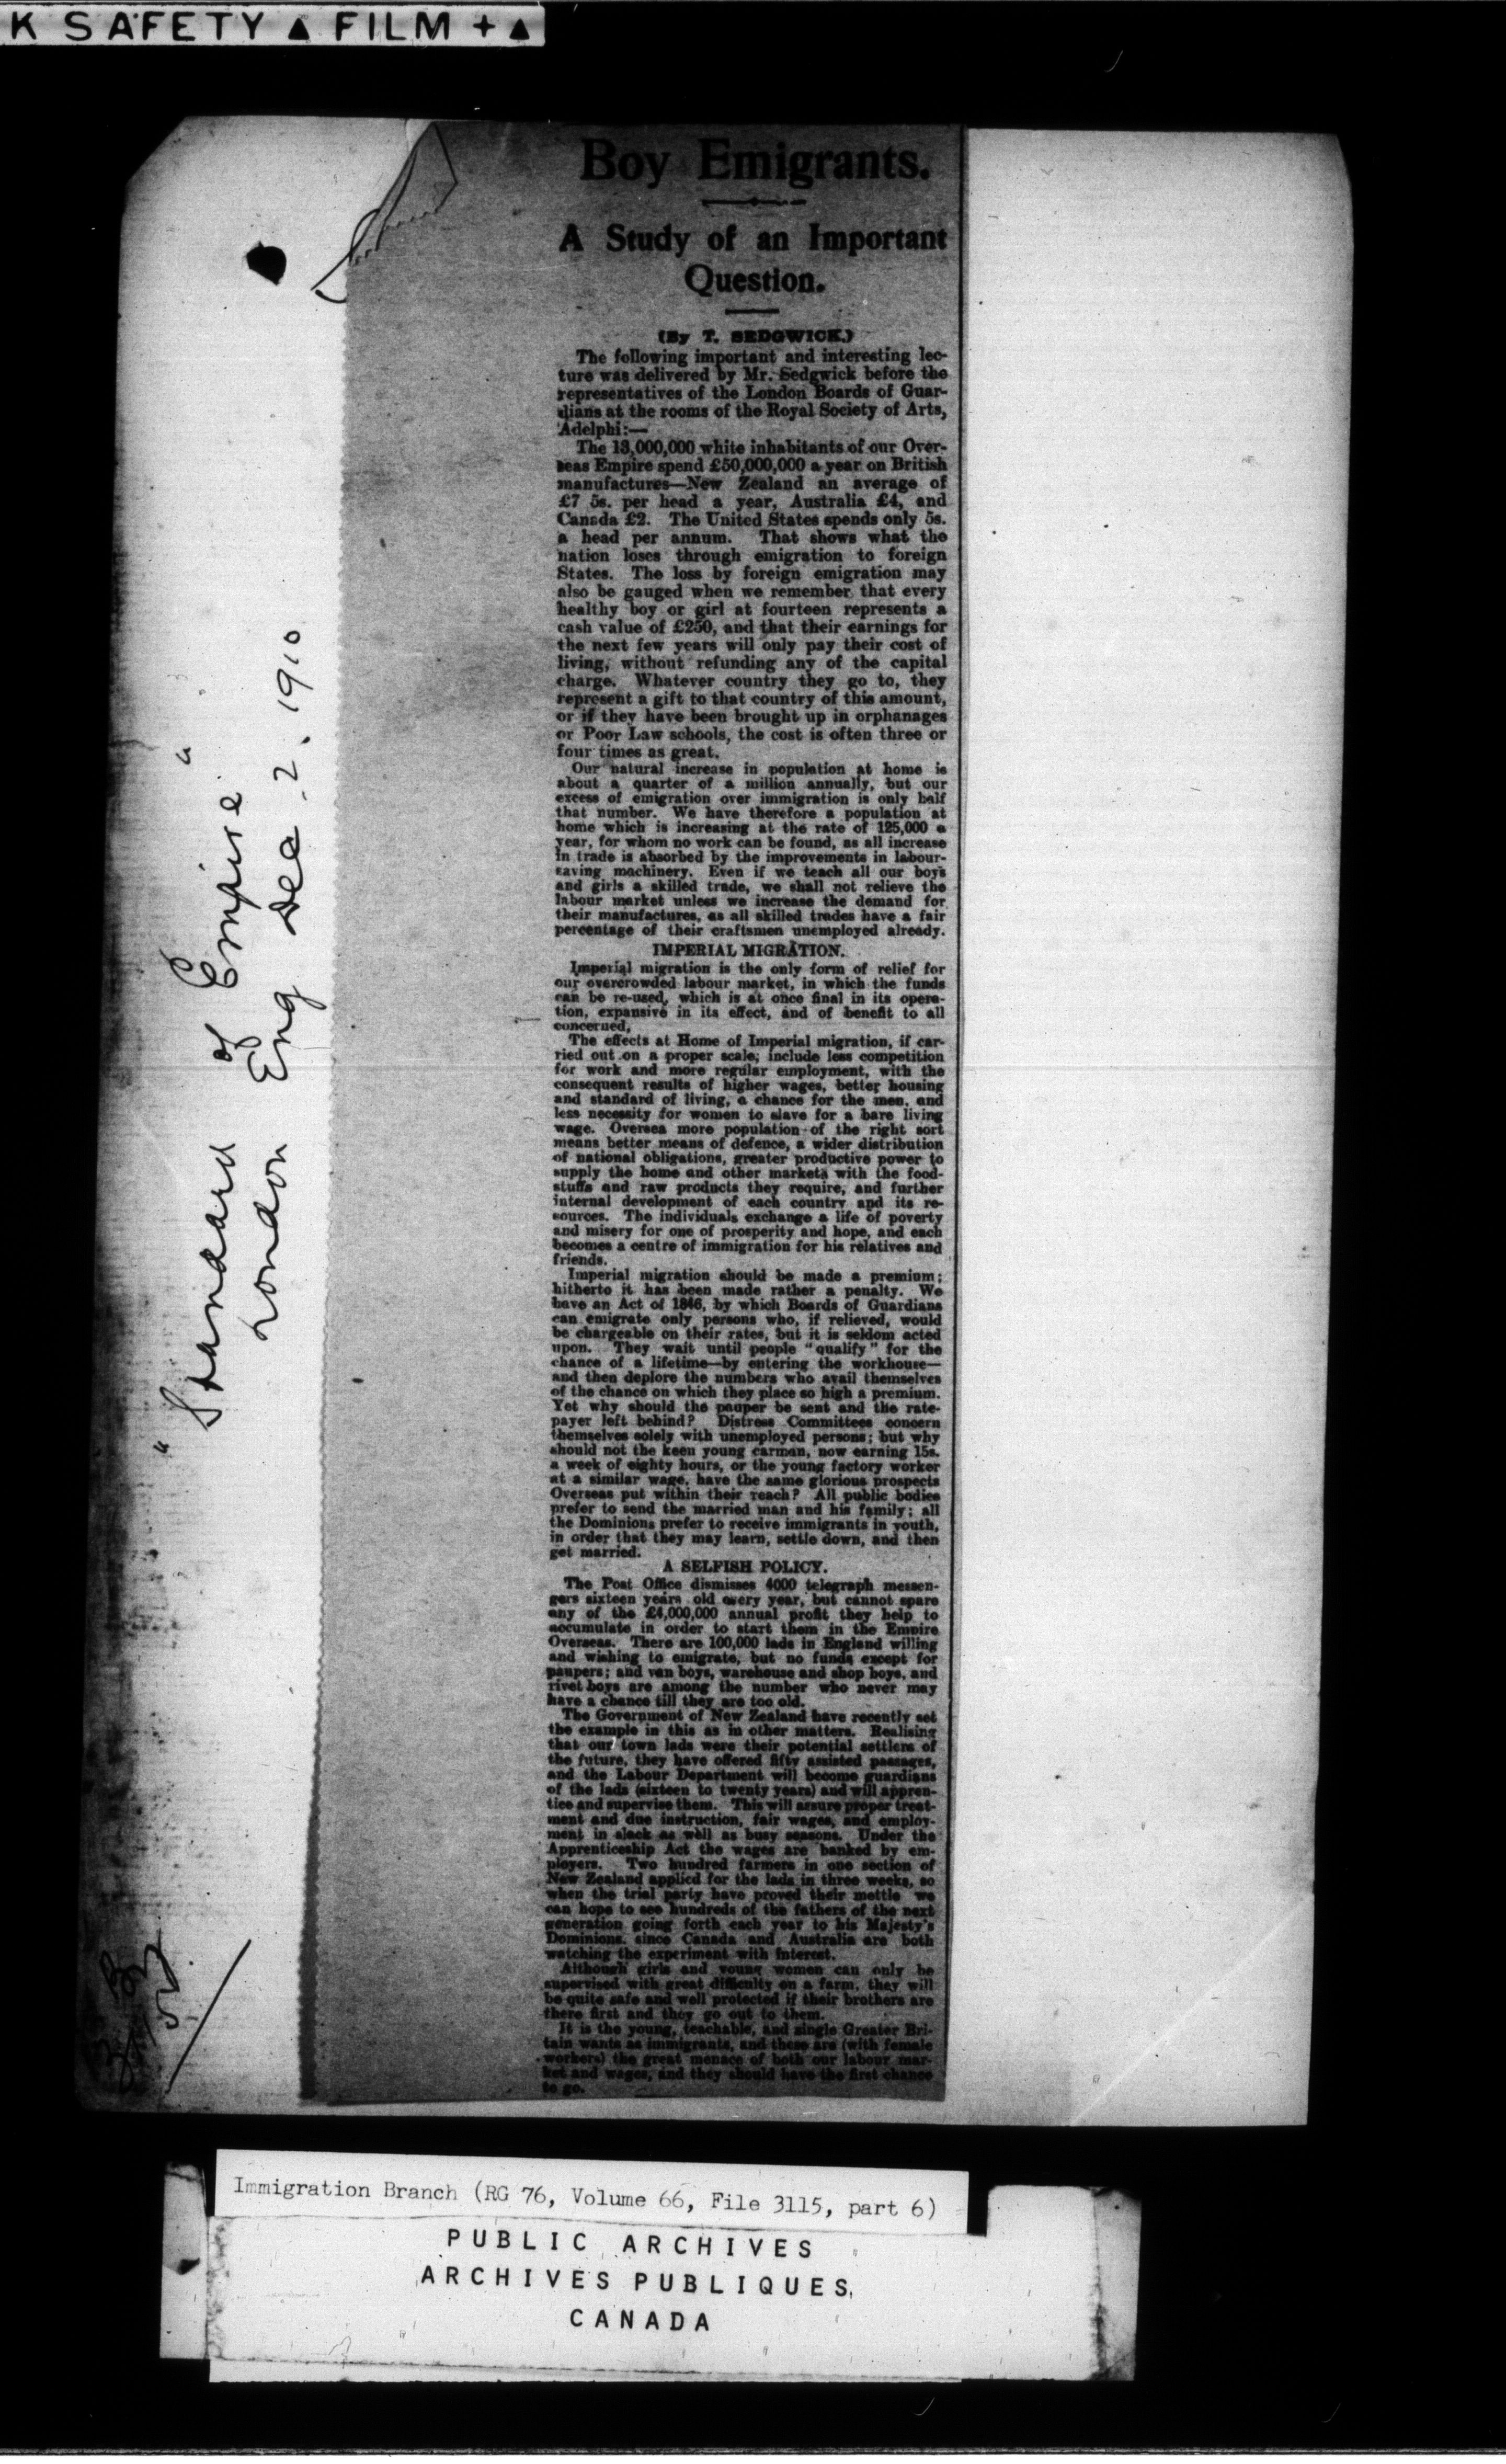 K SAFETY ▲ FILM + ▲
"Standard of Empire"
London Eng Dec. 2. 1910
Boy Emigrants.
A Study of an Important
Question.
(By T. SEDGWICK.)
The following important and interesting lec-
ture was delivered by Mr. Sedgwick before the
representatives of the London Boards of Guar-
dians at the rooms of the Royal Society of Arts,
Adelphi:—
The 13,000,000 white inhabitants of our Over-
seas Empire spend £50,000,000 a year on British
manufactures—New Zealand an average of
£7 5s. per head a year, Australia £4, and
Canada £2. The United States spends only 5s.
a head per annum. That shows what the
nation loses through emigration to foreign
States. The loss by foreign emigration may
also be gauged when we remember that every
healthy boy or girl at fourteen represents a
cash value of £250, and that their earnings for
the next few years will only pay their cost of
living, without refunding any of the capital
charge. Whatever country they go to, they
represent a gift to that country of this amount,
or if they have been brought up in orphanages
or Poor Law schools, the cost is often three or
four times as great.
Our natural increase in population at home is
about a quarter of a million annually, but our
excess of emigration over immigration is only half
that number. We have therefore a population at
home which is increasing at the rate of 125,000 a
year, for whom no work can be found, as all increase
in trade is absorbed by the improvements in labour-
saving machinery. Even if we teach all our boys
and girls a skilled trade, we shall not relieve the
labour market unless we increase the demand for
their manufactures, as all skilled trades have a fair
percentage of their craftsmen unemployed already.
IMPERIAL MIGRATION.
Imperial migration is the only form of relief for
our overcrowded labour market, in which the funds
can be re-used, which is at once final in its opera-
tion, expansive in its effect, and of benefit to all
concerned,
The effects at Home of Imperial migration, if car-
ried out on a proper scale, include less competition
for work and more regular employment, with the
consequent results of higher wages, better housing
and standard of living, a chance for the men, and
less necessity for women to slave for a bare living
wage. Oversea more population of the right sort
means better means of defence, a wider distribution
of national obligations, greater productive power to
supply the home and other markets with the food-
stuffs and raw products they require, and further
internal development of each country and its re-
sources. The individuals exchange a life of poverty
and misery for one of prosperity and hope, and each
becomes a centre of immigration for his relatives and
friends.
Imperial migration should be made a premium;
hitherto it has been made rather a penalty. We
have an Act of 1846, by which Boards of Guardians
can emigrate only persons who, if relieved, would
be chargeable on their rates, but it is seldom acted
upon. They wait until people "qualify" for the
chance of a lifetime—by entering the workhouse—
and then deplore the numbers who avail themselves
of the chance on which they place so high a premium.
Yet why should the pauper be sent and the rate-
payer left behind? Distress Committees concern
themselves solely with unemployed persons; but why
should not the keen young carman, now earning 15s.
a week of eighty hours, or the young factory worker
at a similar wage, have the same glorious prospects
Overseas put within their reach? All public bodies
prefer to send the married man and his family; all
the Dominions prefer to receive immigrants in youth,
in order that they may learn, settle down, and then
get married.
A SELFISH POLICY.
The Post Office dismisses 4000 telegraph messen-
gers sixteen years old every year, but cannot spare
any of the £4,000,000 annual profit they help to
accumulate in order to start them in the Empire
Overseas. There are 100,000 lads in England willing
and wishing to emigrate, but no funds except for
paupers; and van boys, warehouse and shop boys, and
rivet boys are among the number who never may
have a chance till they are too old.
The Government of New Zealand have recently set
the example in this as in other matters. Realising
that our town lads were their potential settlers of
the future, they have offered fifty assisted passages,
and the Labour Department will become guardians
of the lads (sixteen to twenty years) and will appren-
tice and supervise them. This will assure proper treat-
ment and due instruction, fair wages, and employ-
ment in slack as well as busy seasons. Under the
Apprenticeship Act the wages are banked by em-
ployers. Two hundred farmers in one section of
New Zealand applied for the lads in three weeks, so
when the trial party have proved their mettle we
can hope to see hundreds of the fathers of the next
generation going forth each year to his Majesty's
Dominions, since Canada and Australia are both
watching the experiment with interest.
Although girls and young women can only be
supervised with great difficulty on a farm, they will
be quite safe and well protected if their brothers are
there first and they go out to them.
It is the young, teachable, and single Greater Bri-
tain wants as immigrants, and these are (with female
workers) the great menace of both our labour mar-
ket and wages, and they should have the first chance
to go.
Immigration Branch (RG 76, Volume 66, File 3115, part 6)
PUBLIC ARCHIVES
ARCHIVES PUBLIQUES
CANADA